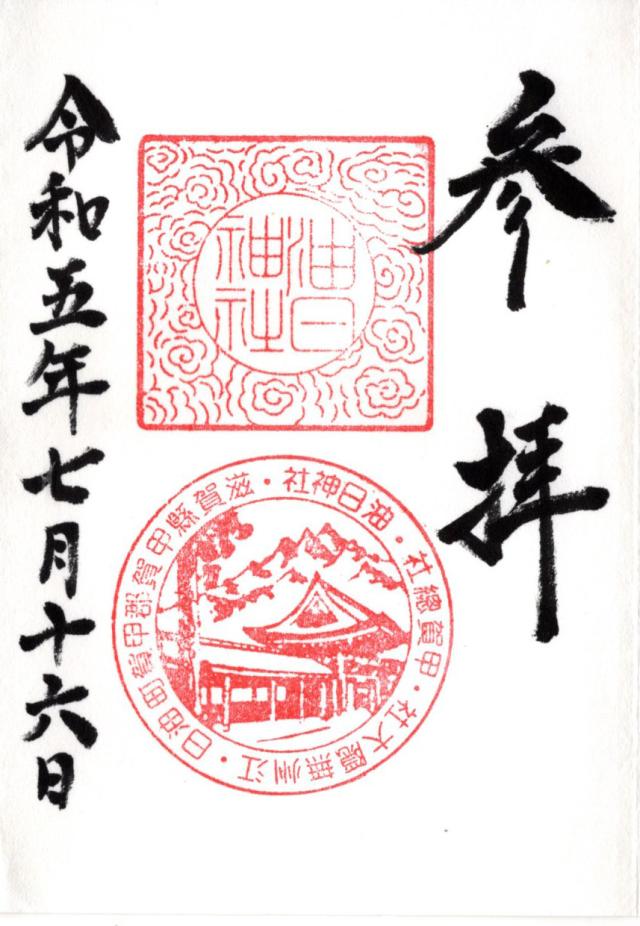 参拝
油日
神社
油日神社・滋賀縣甲賀郡甲賀町油日・江州無隠大社・甲賀總社・
令和五年七月十六日